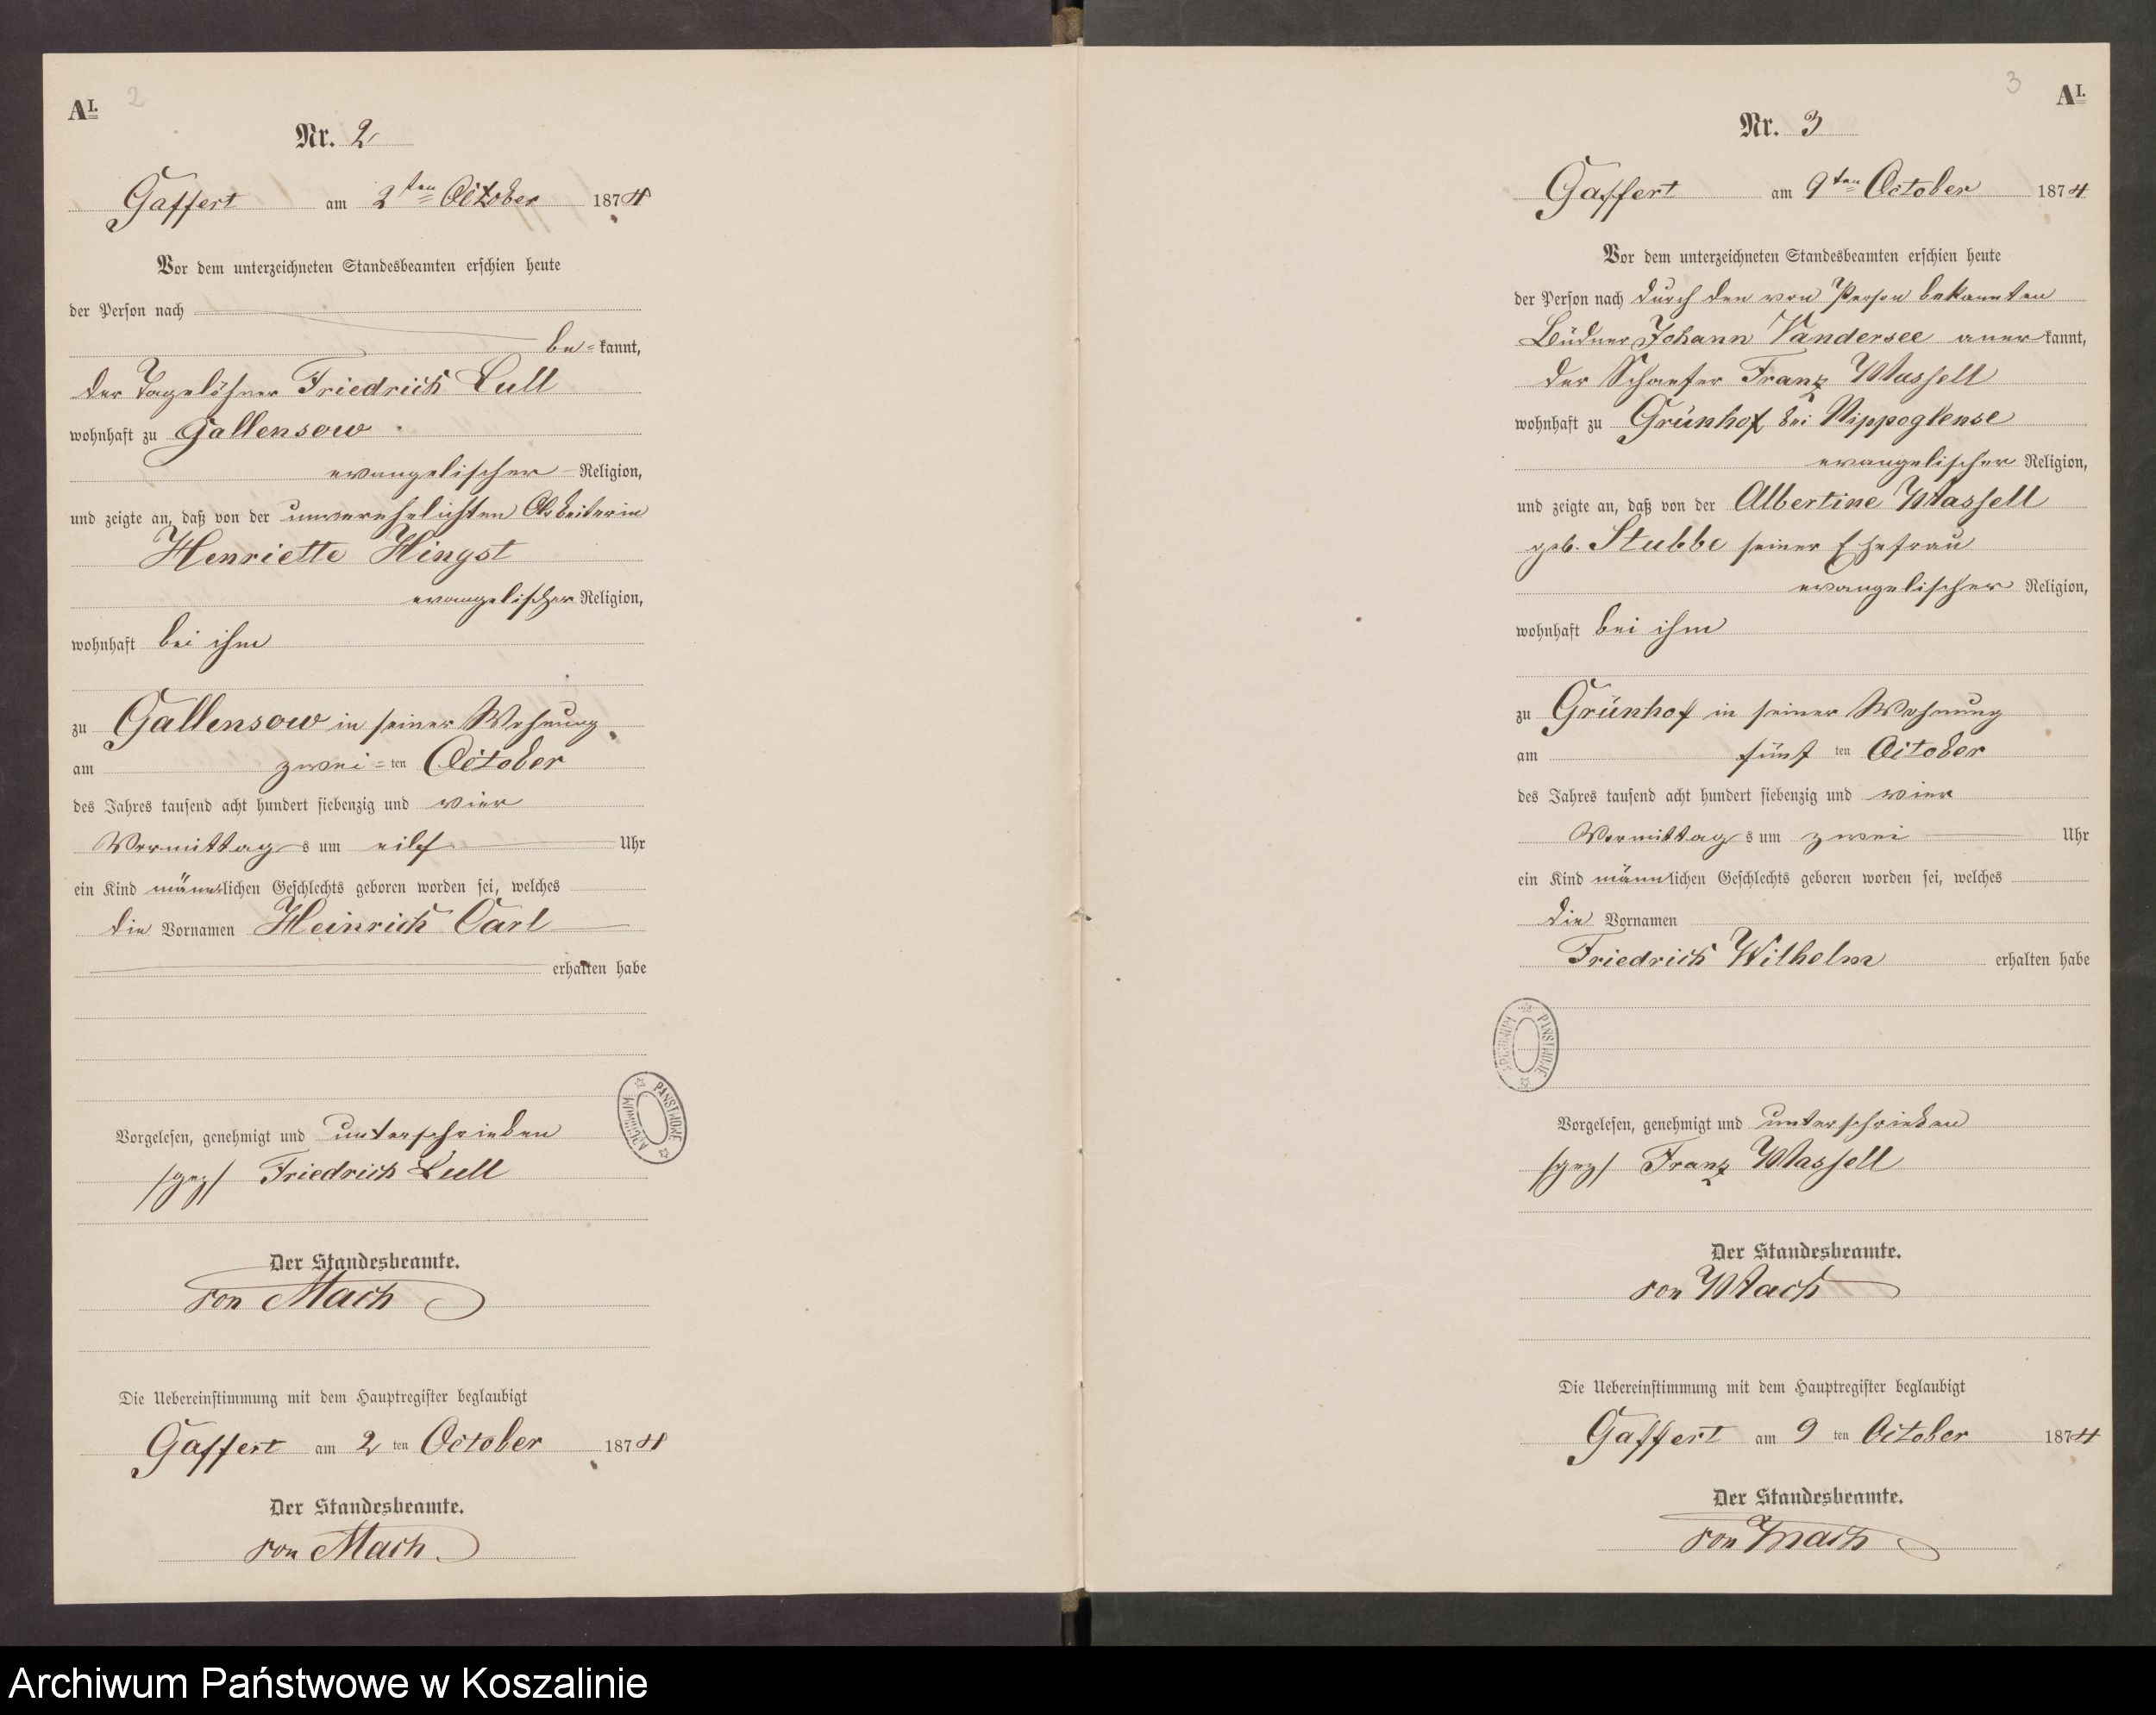 A I.
2
Nr. 2
Gaffert am 2ten October 1874
Vor dem unterzeichneten Standesbeamten erschien heute
der Person nach
be-kannt,
der Tagelöhner Friedrich Lull
wohnhaft zu Gallensow
evangelischer Religion,
und zeigte an, daß von der unverehelichten Arbeiterin
Henriette Hingst
evangelischer Religion,
wohnhaft bei ihm
zu Gallensow in seiner Wohnung
am zwei-ten October
des Jahres tausend acht hundert siebenzig und vier
Vormittags um eilf Uhr
ein Kind männlichen Geschlechts geboren worden sei, welches
die Vornamen Heinrich Carl
erhalten habe
Vorgelesen, genehmigt und unterschrieben
/gez/ Friedrich Lull
Der Standesbeamte.
von Mach
Die Uebereinstimmung mit dem Hauptregister beglaubigt
Gaffert am 2 ten October 1874
Der Standesbeamte.
von Mach
ARCHIWUM PAŃSTWOWE
3
A I.
Nr. 3
Gaffert am 9ten October 1874
Vor dem unterzeichneten Standesbeamten erschien heute
der Person nach durch den von Person bekannten
Büdner Johann Vandersee anerkannt,
der Schaefer Franz Massell
wohnhaft zu Grünhof bei Nippoglense
evangelischer Religion,
und zeigte an, daß von der Albertine Massell
geb. Stubbe seiner Ehefrau
evangelischer Religion,
wohnhaft bei ihm
zu Grünhof in seiner Wohnung
am fünf ten October
des Jahres tausend acht hundert siebenzig und vier
Vormittags um zwei Uhr
ein Kind männlichen Geschlechts geboren worden sei, welches
die Vornamen
Friedrich Wilhelm erhalten habe
ARCHIWUM PAŃSTWOWE
Vorgelesen, genehmigt und unterschrieben
/gez/ Franz Massell
Der Standesbeamte.
von Mach
Die Uebereinstimmung mit dem Hauptregister beglaubigt
Gaffert am 9 ten October 1874
Der Standesbeamte.
von Mach
Archiwum Państwowe w Koszalinie